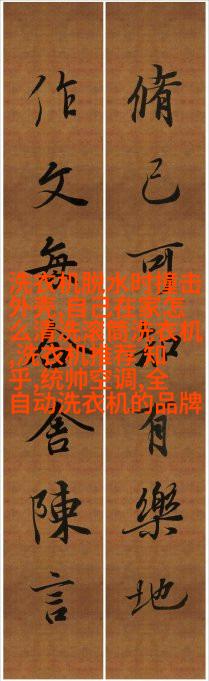 脩己可有樂地
作文舍陳言
洗衣机脱水时撞击
外壳,自己在家怎
么清洗滚筒洗衣机
,洗衣机推荐 知
乎,统帅空调,全
自动洗衣机的品牌